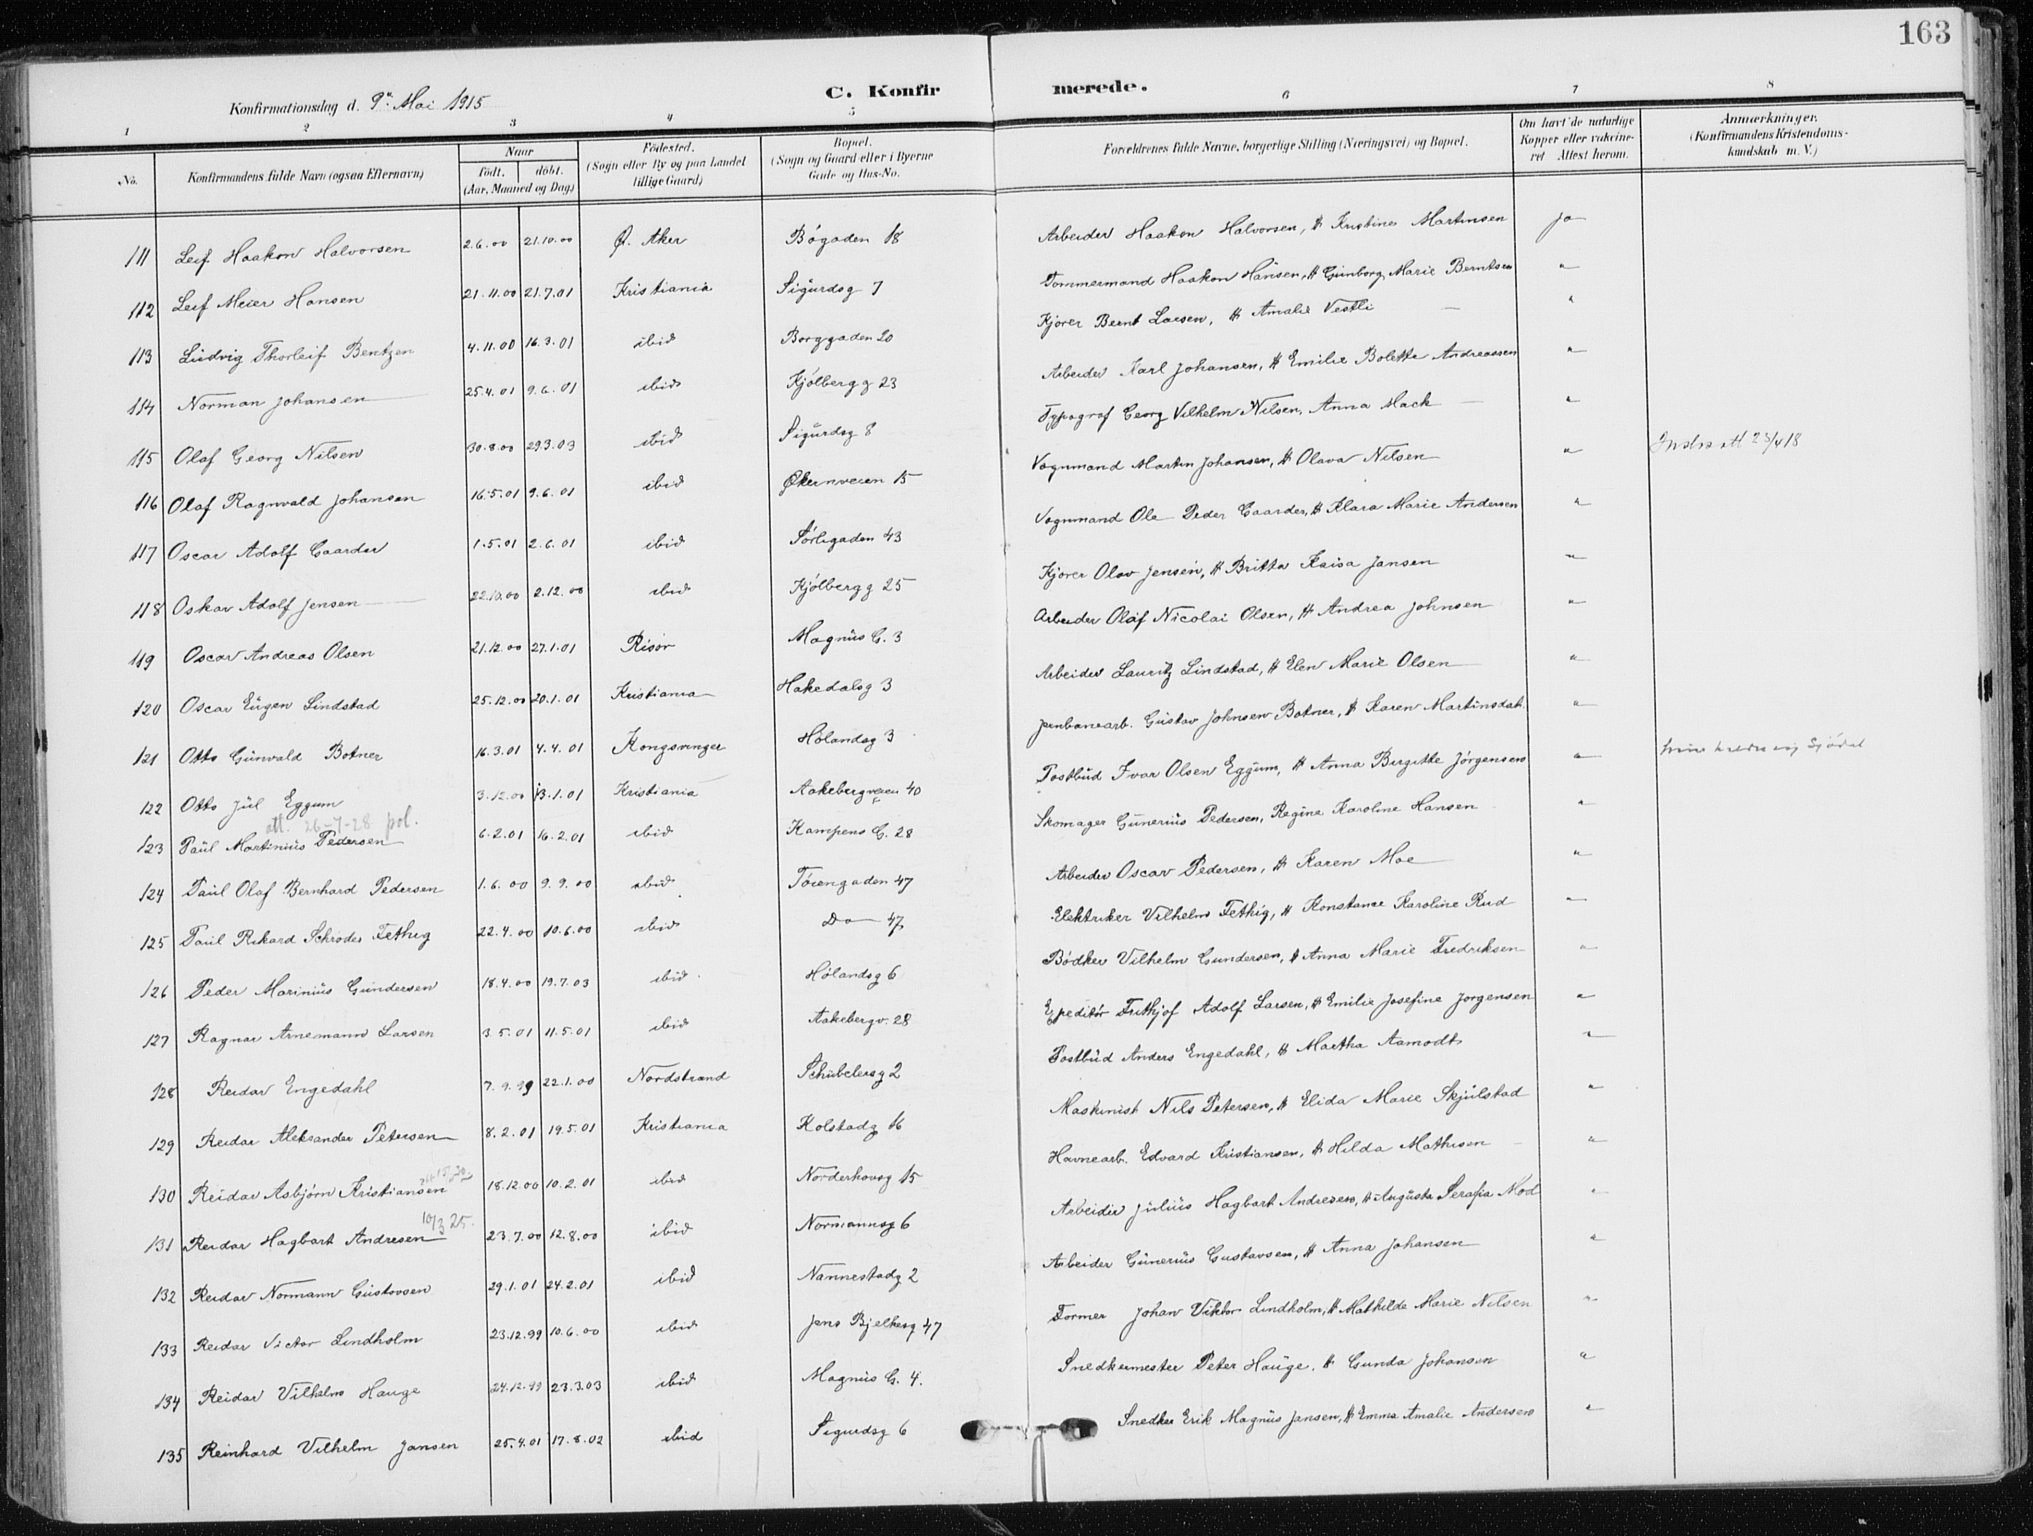 163
Konfirmationsdag d. 9de Mai 1915
C. Konfirmerede.
1 2 3 4 5 6 7 8
No.
Konfirmandens fulde Navn (ogsaa Efternavn)
Naar
født. døbt.
(Aar, Maaned og Dag)
Fødested.
(Sogn eller By og paa Landet
tillige Gaard)
Bopæl.
(Sogn og Gaard eller i Byerne
Gade og Hus-No.
Forældrenes fulde Navne, borgerlige Stilling (Næringsvei) og Bopæl.
Om havt de naturlige
Kopper eller vakcine-
ret Attest herom.
Anmærkninger.
(Konfirmandens Kristendoms-
kundskab m. V.)
111 Leif Haakon Halvorsen 2.6.00 21.10.00 Ø. Aker Bøgaden 18 Arbeider Haakon Halvorsen, H Kristine Martinsen ja
112 Leif Meier Hansen 21.11.00 21.7.01 Kristiania Sigurdsg 7 Tømmermand Haakon Hansen, H Gunborg Marie Berntsen "
113 Ludvig Thorleif Bentzen 4.11.00 16.3.01 ibid Borggaden 20 Kjører Bernt Larsen, H Amalie Vestli "
114 Norman Johansen 25.4.01 9.6.01 ibid Kjølbergg 23 Arbeider Karl Johansen, H Emilie Bolette Andreassen "
115 Olaf Georg Nilsen 30.8.00 29.3.03 ibid Sigurdsg 8 Typograf Georg Vilhelm Nilsen, Anna Mack "
116 Olaf Ragnvald Johansen 16.5.01 9.6.01 ibid Økernveien 15 Vognmand Martin Johansen, H Olava Nilsen " 23/4 18
117 Oscar Adolf Caarder 1.5.01 2.6.01 ibid Sørligaden 43 Vognmand Ole Peder Caarder, H Klara Marie Andersen "
118 Oskar Adolf Jensen 22.10.00 2.12.00 ibid Kjølbergg 25 Kjører Olav Jensen, H Britta Kaisa Jansen "
119 Oscar Andreas Olsen 21.12.00 27.1.01 Risør Magnus G. 3 Arbeider Olaf Nicolai Olsen, H Andrea Johnsen "
120 Oscar Eugen Lindstad 25.12.00 20.1.01 Kristiania Hakedalsg 3 Arbeider Lauritz Lindstad, H Elen Marie Olsen "
121 Otto Gunvald Botner 16.3.01 4.4.01 Kongsvinger Hølandsg 3 Jernbanearb. Gustav Johnsen Botner, H Karen Martinsdat. "
122 Otto Jul Eggum 3.12.00 13.1.01 Kristiania Aakebergveien 40 Postbud Ivar Olsen Eggum, H Anna Birgitte Jørgensen "
att. 26-7-28 pol.
123 Paul Martinius Pedersen 6.2.01 16.2.01 ibid Kampens G. 28 Skomager Gunerius Pedersen, Regine Karoline Hansen "
124 Paul Olaf Bernhard Pedersen 1.6.00 9.9.00 ibid Tøiengaden 47 Arbeider Oscar Pedersen, H Karen Moe "
125 Paul Rikard Schrøder Fethig 22.4.00 10.6.00 ibid Do 47 Elektriker Vilhelm Fethig, H Konstance Karoline Rud "
126 Peder Marinius Gundersen 18.4.00 19.7.03 ibid Hølandsg 6 Bødker Vilhelm Gundersen, H Anna Marie Fredriksen "
127 Ragnar Arnemann Larsen 3.5.01 11.5.01 ibid Aakebergv. 28 Expeditør Frithjof Adolf Larsen, H Emilie Josefine Jørgensen "
128 Reidar Engedahl 7.9.99 22.1.00 Nordstrand Schübelersg 2 Postbud Anders Engedahl, H Martha Aamodt "
129 Reidar Aleksander Petersen 8.2.01 19.5.01 Kristiania Kolstadg 16 Maskinist Nils Petersen, H Elida Marie Skjulstad "
130 Reidar Asbjørn Kristiansen 18.12.00 10.2.01 ibid Norderhovsg 15 Havnearb. Edvard Kristiansen, H Hilda Mathisen "
10/3 25.
131 Reidar Hagbart Andresen 23.7.00 12.8.00 ibid Normannsg 6 Arbeider Julius Hagbart Andresen, H Augusta Serafia Mod "
132 Reidar Normann Gustavsen 29.1.01 24.2.01 ibid Nannestadg 2 Arbeider Gunerius Gustavsen, H Anna Johansen "
133 Reidar Victor Lindholm 23.12.99 10.6.00 ibid Jens Bjelkesg 47 Former Johan Viktor Lindholm, H Mathilde Marie Nilsen "
134 Reidar Vilhelm Hauge 24.12.99 23.3.03 ibid Magnus G. 4. Snedkermester Peter Hauge, H Gunda Johansen "
135 Reinhard Vilhelm Jansen 25.4.01 17.8.02 ibid Sigurdsg 6 Snedker Erik Magnus Jansen, H Emma Amalie Andersen "